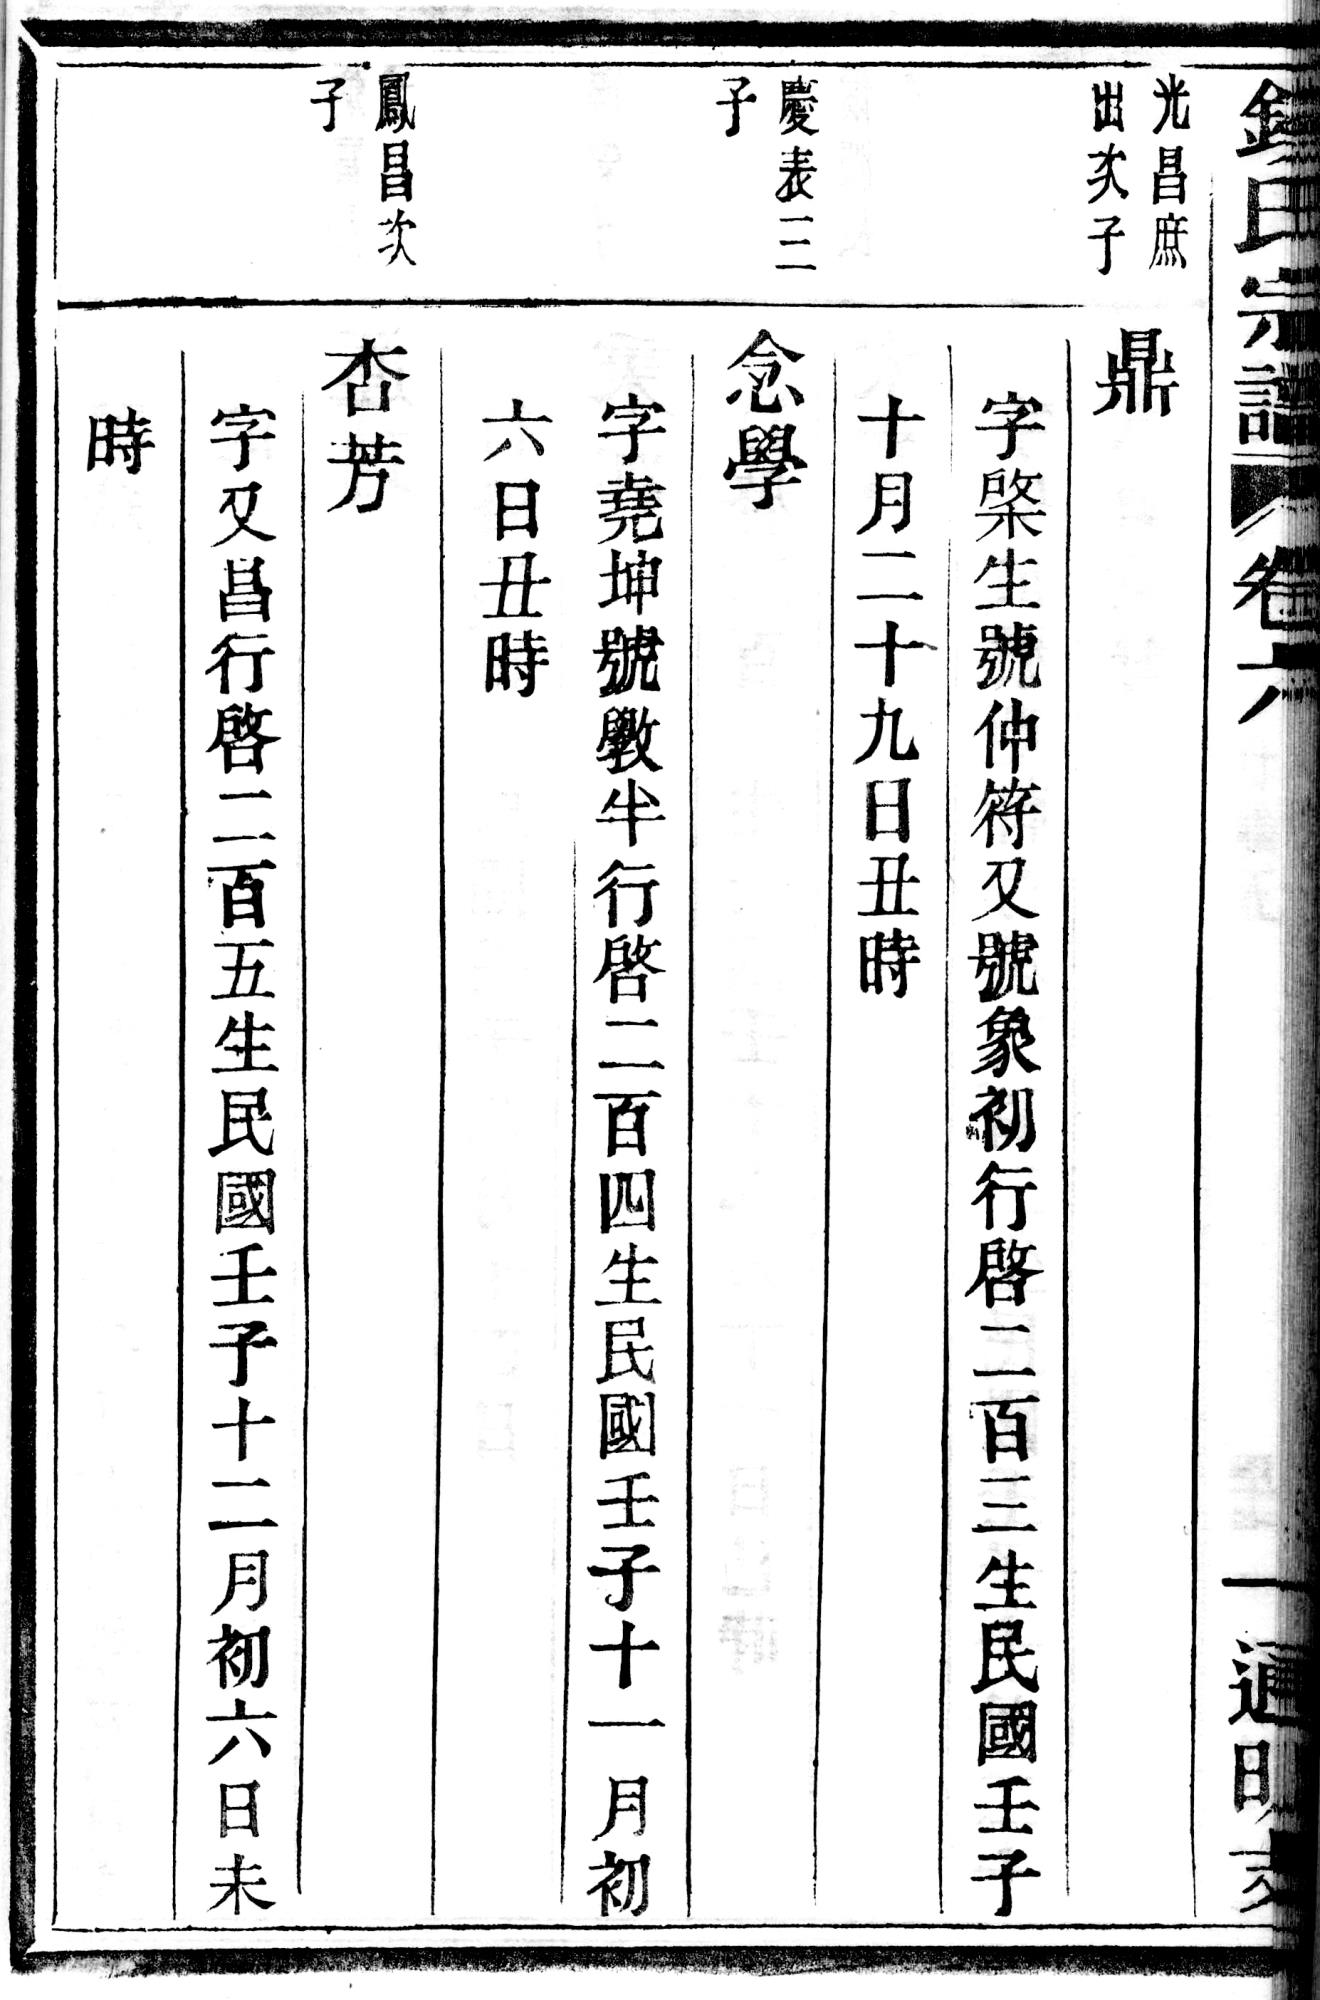 氏宗譜
卷六
一
通明支
光昌庶
出次子
鼎
字棨生號仲符又號象初行啓二百三生民國壬子
十月二十九日丑時
慶表三
子
念學
字堯坤號斆半行啓二百四生民國壬子十一月初
六日丑時
鳳昌次
子
杏芳
字又昌行啓二百五生民國壬子十二月初六日未
時